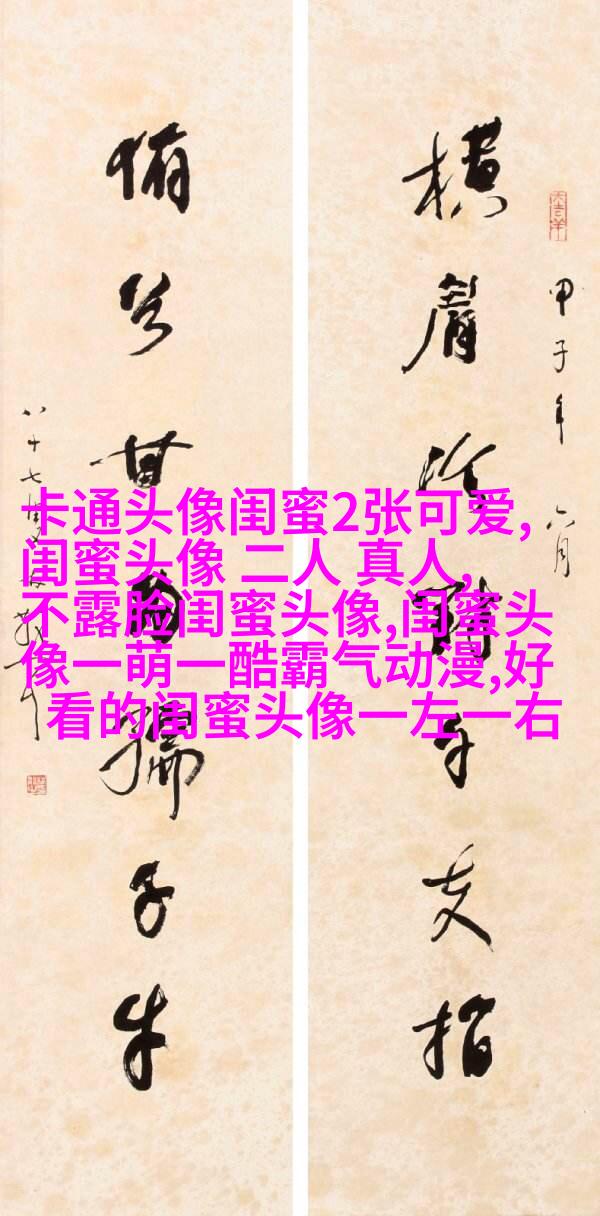 甲子年六月
横眉冷對千夫指
俯首甘為孺子牛
八十七
卡通头像闺蜜2张可爱,
闺蜜头像 二人 真人,
不露脸闺蜜头像,闺蜜头
像一萌一酷霸气动漫,好
看的闺蜜头像一左一右